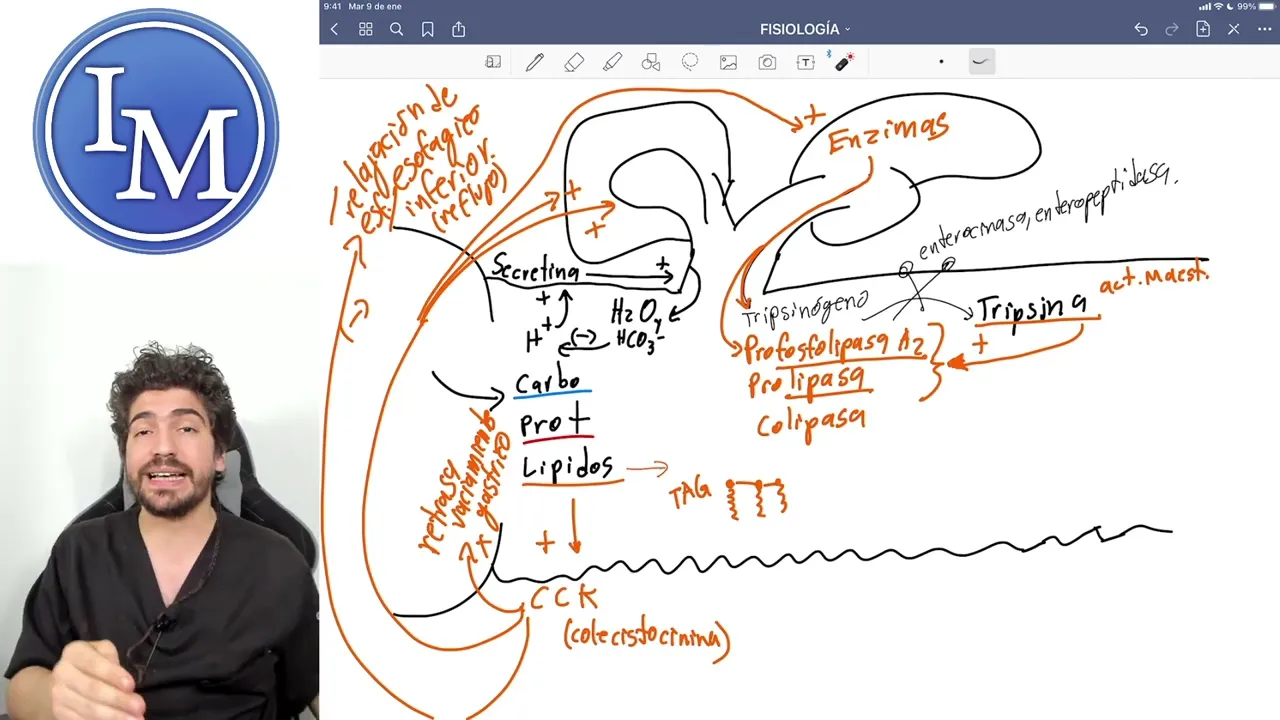 9:41 Mar 9 de ene
99%
FISIOLOGÍA
IM
relajación de
esf. esofágico
inferior.
(reflujo)
(-)
+
Enzimas
+
+
enterocinasa, enteropeptidasa.
Secretina
+
+
H+
(-)
H2O y
HCO3-
Tripsinógeno
Tripsina
act. Maest.
+
Profosfolipasa A2
Prolipasa
colipasa
Carbo
Prot
Lípidos
TAG
retrasa
vaciamiento
gástrico
+
+
CCK
(colecistocinina)